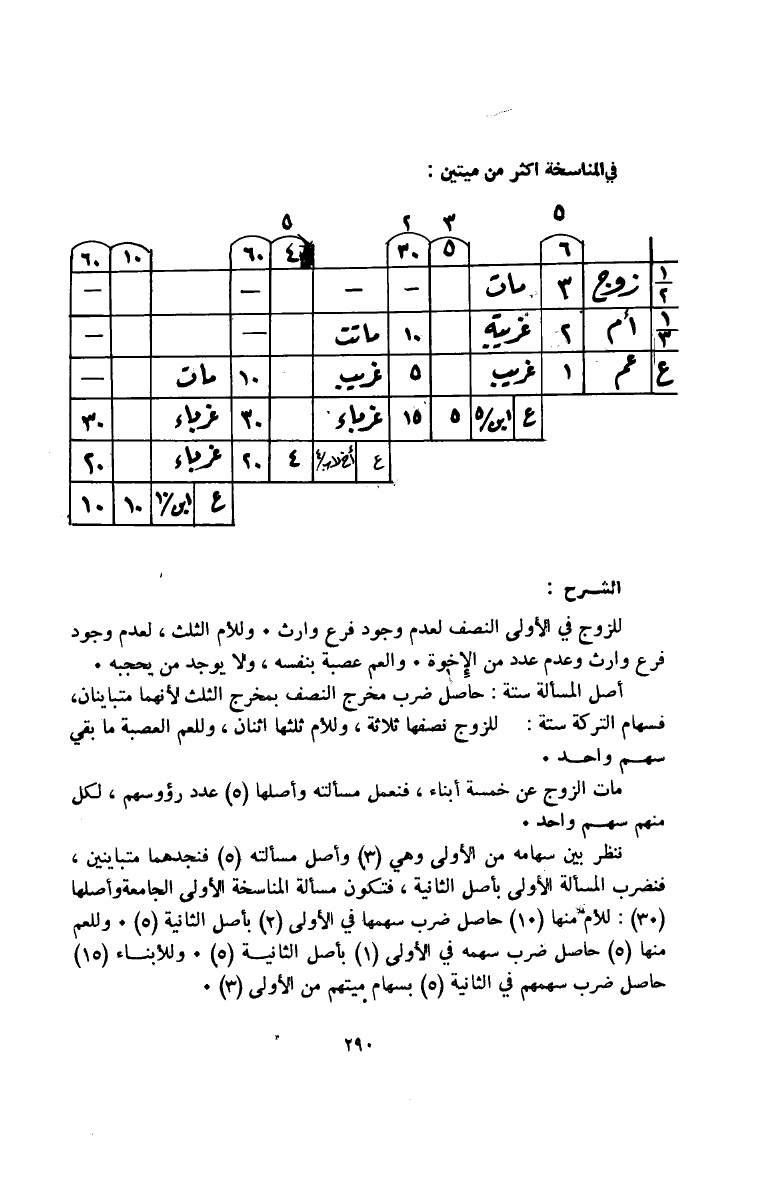 في المناسخة اكثر من ميتين :
٥ ٣ ٢ ٥
٦ ٥ ٣٠ ٤ ٦٠ ١٠ ٦٠
١/٢ زوج ٣ مات — — — —
١/٣ أم ٢ غريبة ١٠ ماتت — —
ع عم ١ غريب ٥ غريب ١٠ مات —
ع ابن/٥ ٥ ١٥ غرباء ٣٠ غرباء ٣٠
ع ٤ ٢٠ غرباء ٢٠
ع ابن/١٠ ١٠ ١٠
الشـرح :
للزوج في الأولى النصف لعدم وجود فرع وارث ٠ وللأم الثلث ، لعدم وجود
فرع وارث وعدم عدد من الإخوة ٠ والعم عصبة بنفسه ، ولا يوجد من يحجبه ٠
أصل المسألة ستة : حاصل ضرب مخرج النصف بمخرج الثلث لأنهما متباينان،
فسهام التركة ستة : للزوج نصفها ثلاثة ، وللأم ثلثها اثنان ، وللعم العصبة ما بقي
سهـم واحـد ٠
مات الزوج عن خمسة أبناء ، فنعمل مسألته وأصلها (٥) عدد رؤوسهم ، لكل
منهم سهـم واحد ٠
ننظر بين سهامه من الأولى وهي (٣) وأصل مسألته (٥) فنجدهما متباينين ،
فنضرب المسألة الأولى بأصل الثانية ، فتكون مسألة المناسخة الأولى الجامعةوأصلها
(٣٠) : للأم منها (١٠) حاصل ضرب سهمها في الأولى (٢) بأصل الثانية (٥) ٠ وللعم
منها (٥) حاصل ضرب سهمه في الأولى (١) بأصل الثانيـة (٥) ٠ وللأبنـاء (١٥)
حاصل ضرب سهمهم في الثانية (٥) بسهام ميتهم من الأولى (٣) ٠
٢٩٠